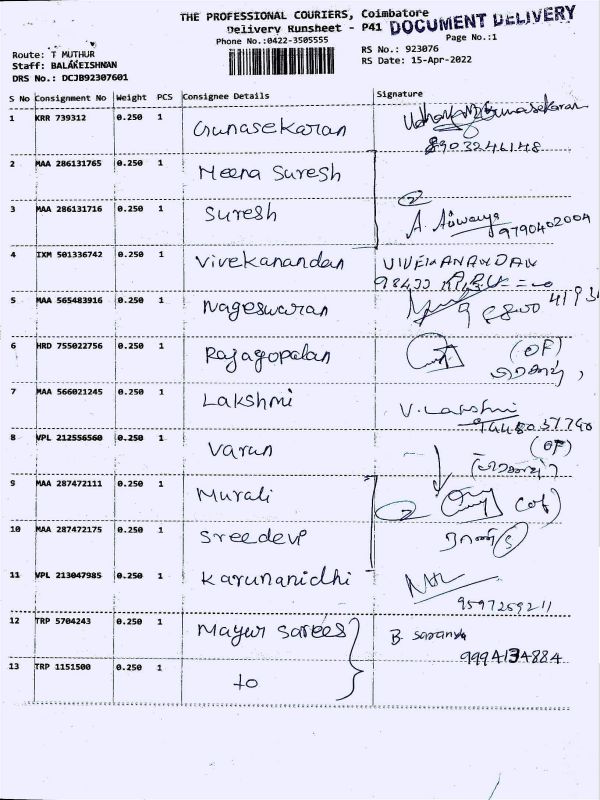 THE PROFESSIONAL COURIERS, Coimbatore
Delivery Runsheet - P41 DOCUMENT DELIVERY
Phone No.:0422-3505555 Page No.:1
Route: T MUTHUR RS No.: 923076
Staff: BALAKEISHNAN RS Date: 15-Apr-2022
DRS No.: DCJB92307601
S No Consignment No Weight PCS Consignee Details Signature
1 KRR 739312 0.250 1 Gunasekaran
8903246148
2 MAA 286131765 0.250 1 Meena Suresh
3 MAA 286131716 0.250 1 Suresh 2
9790402004
4 IXM 501336742 0.250 1 Vivekanandan VIVEKANANDAN
5 MAA 565483916 0.250 1 Nageswaran
6 HRD 755022756 0.250 1 Rajagopalan (OF)
7 MAA 566021245 0.250 1 Lakshmi V. Lakshmi
8 VPL 212556560 0.250 1 Varun (OF)
9 MAA 287472111 0.250 1 Murali 2
10 MAA 287472175 0.250 1 Sreedevi
11 VPL 213047985 0.250 1 Karunanidhi
9597259211
12 TRP 5704243 0.250 1 Mayur Sarees B. Saranya
9994134884
13 TRP 1151500 0.250 1 to